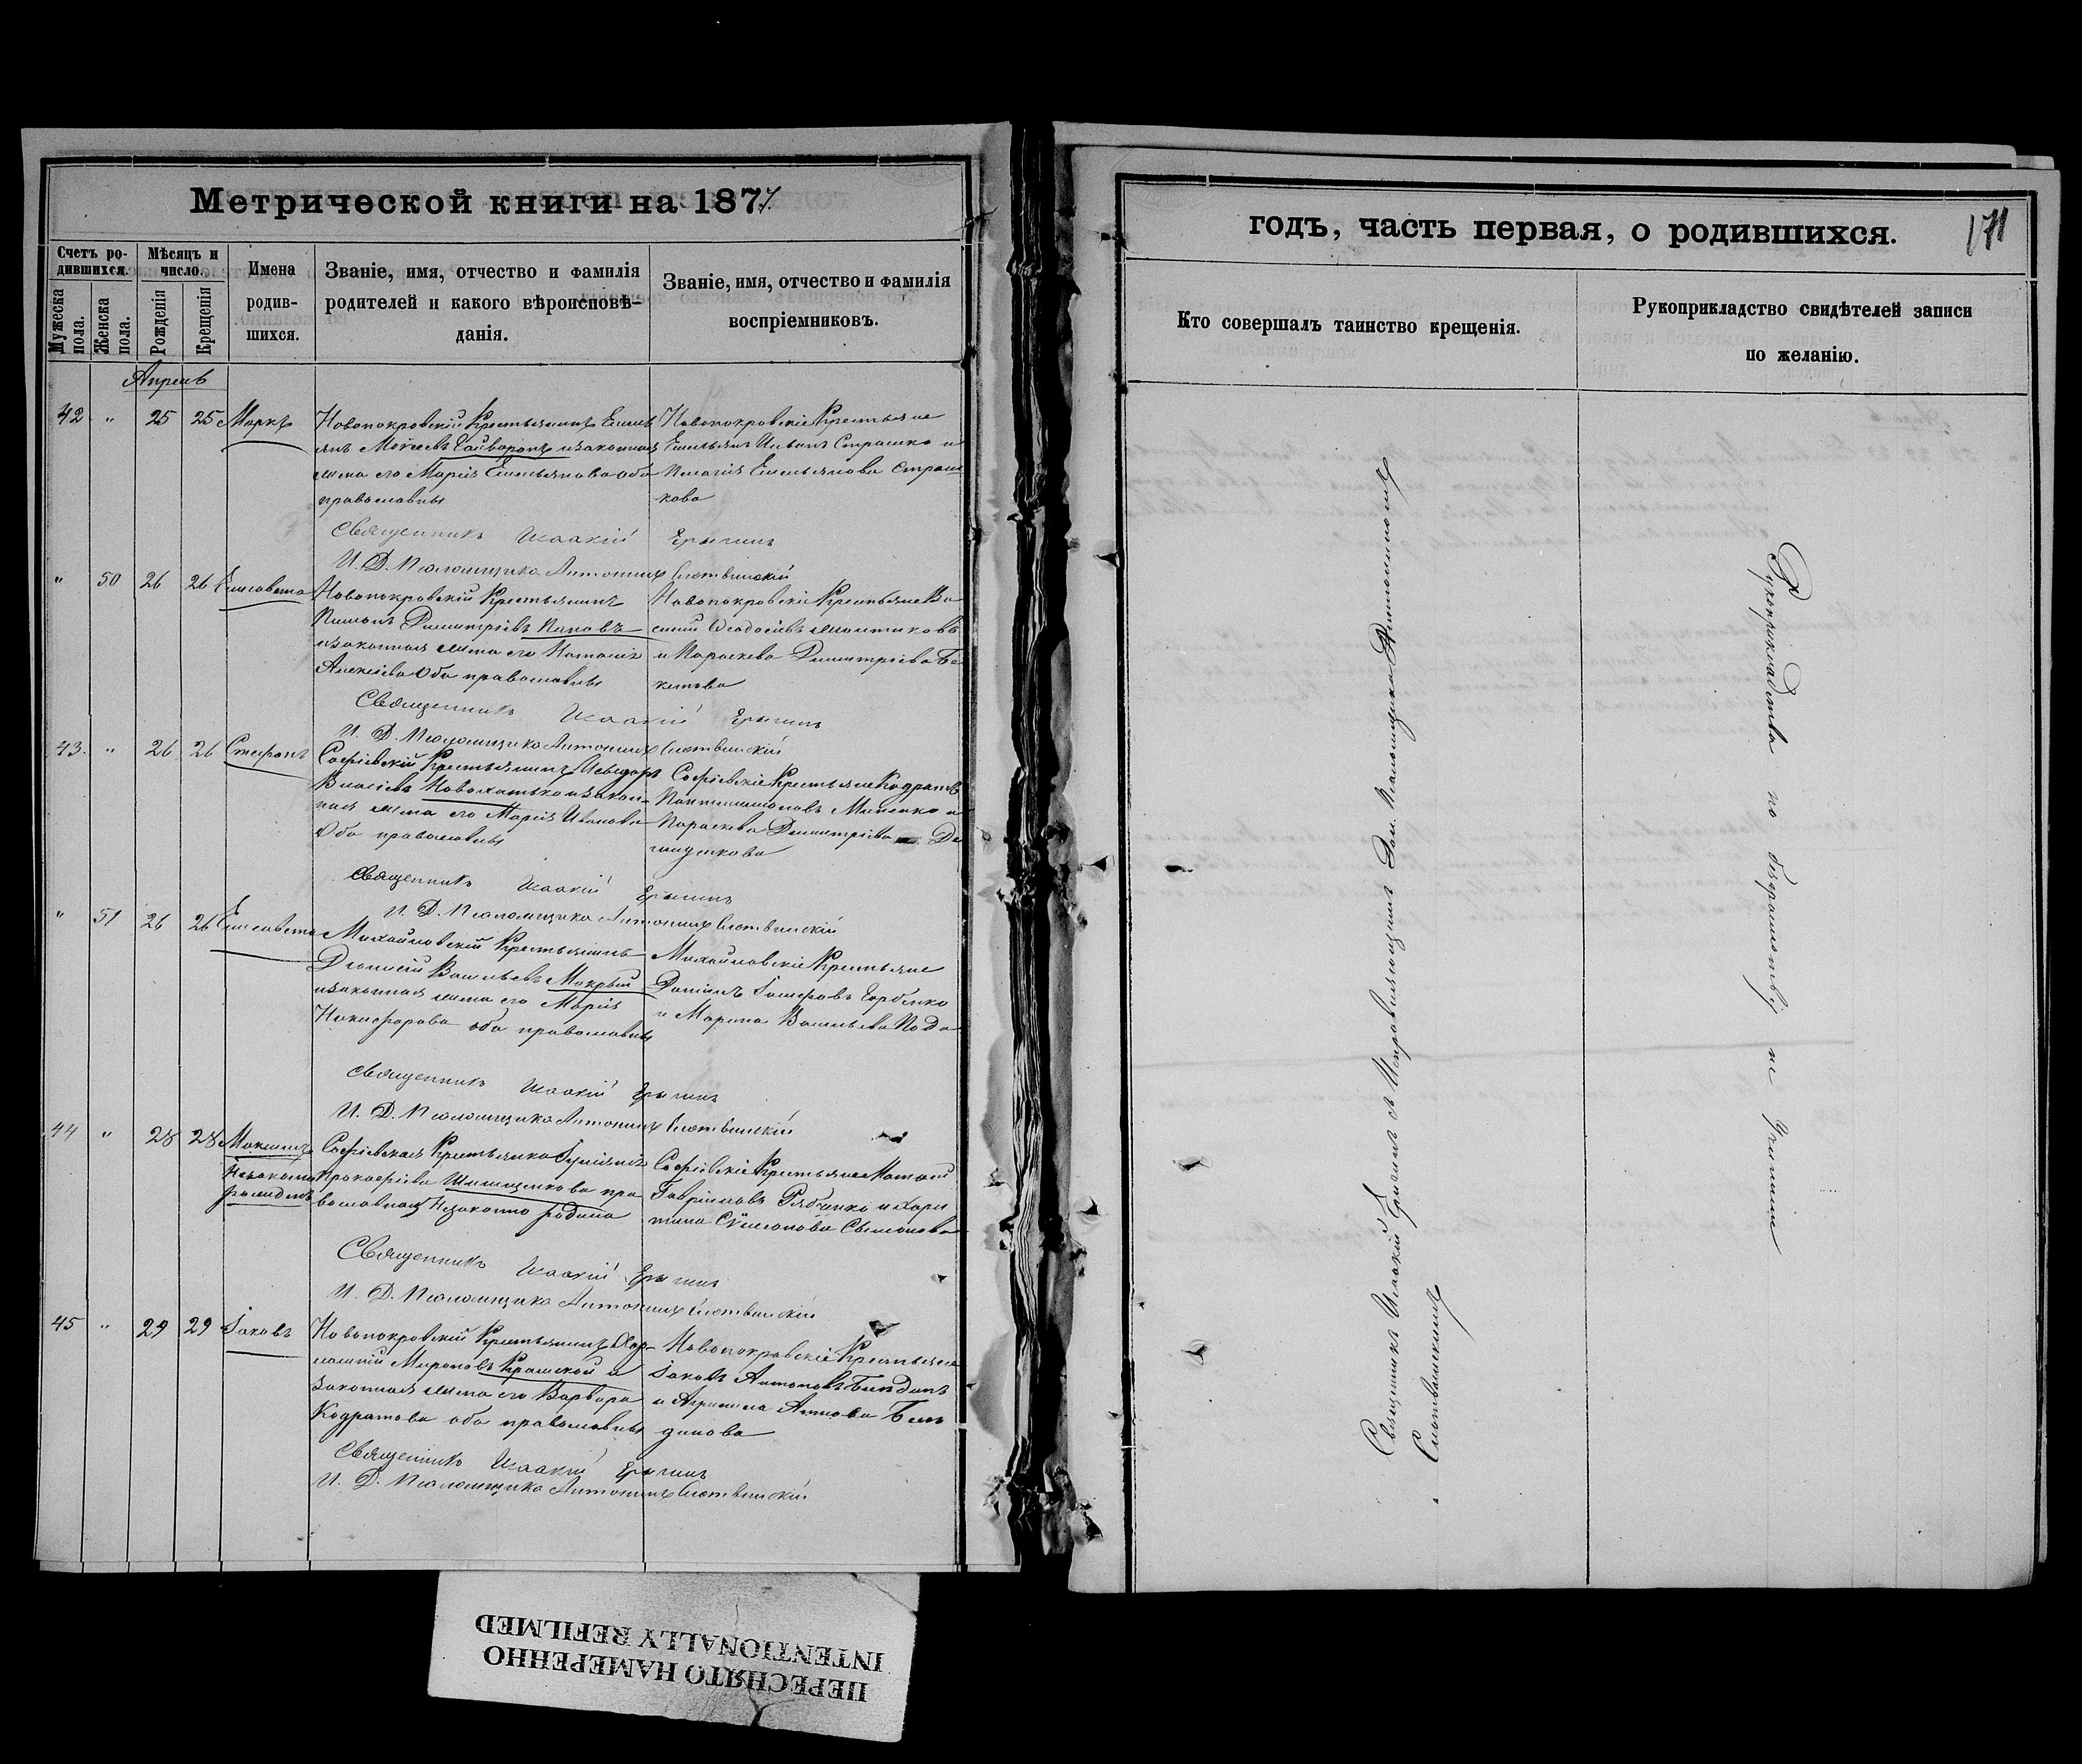 Метрической книги на 1877
Счетъ ро-
дившихся.
Мужеска
пола.
Женска
пола.
Мѣсяцъ и
число.
Рожденія
Крещенія
Имена
родив-
шихся.
Званіе, имя, отчество и фамилія
родителей и какого вѣроисповѣ-
данія.
Званіе, имя, отчество и фамилія
воспріемниковъ.
Апрель
42 " 25 25 Маркъ
Новопокровскій Крестьянинъ Емель
янъ Моѵсеевъ Гайворонъ изаконная
жена его Марія Емельянова Оба
православны
Новопокровскіе Крестьяне
Емельянъ Ивановъ Страшко и
Пелагія Емельянова Страш
кова
Священникъ Исаакій Ерыгинъ
И. Д. Псаломщика Антонинъ Слотвинскій
" 50 26 26 Елисавета
Новопокровскій Крестьянинъ
Димитріевъ Паповъ
изаконная жена его Наталія
Алексіева Оба православны
Новопокровскіе Крестьяне Ва
силій Ѳеодосіевъ
и Параскева Димитріева Бе
кетова
Священникъ Исаакій Ерыгинъ
И. Д. Псаломщика Антонинъ Слотвинскій
43. " 26 26 Стефанъ
Софіевскій Крестьянинъ
Власіевъ изакон
ная жена его Марія Иванова
Оба православны
Софіевскіе Крестьяне Кодратъ
Пантелимоновъ Миненко и
Параскева Димитріева Де
мидкова
Священникъ Исаакій Ерыгинъ
И. Д. Псаломщика Антонинъ Слотвинскій
" 51 26 26 Елисавета
Михайловскій Крестьянинъ
Діонисій Васильевъ Мокрый
изаконная жена его Марія
Никифорова оба православны
Михайловскіе Крестьяне
Даніилъ Іосифовъ Горбенко
и Марина Васильева
Священникъ Исаакій Ерыгинъ
И. Д. Псаломщика Антонинъ Слотвинскій
44 " 28 28 Максимъ
Незаконно
рожденъ
Софіевская Крестьянка Іуліанія
Прокофіева Шинщенкова пра
вославная Незаконно родила
Софіевскіе Крестьяне Матѳей
Гавріиловъ Рябченко и Хари
тина Сѵмеонова
Священникъ Исаакій Ерыгинъ
И. Д. Псаломщика Антонинъ Слотвинскій
45 " 29 29 Іаковъ
Новопокровскій Крестьянинъ Хар
лампій Мироновъ и
законная жена его Варвара
Кодратова оба православны
Новопокровскіе Крестьяне
Іаковъ Антоновъ
и Агрипина
динова
Священникъ Исаакій Ерыгинъ
И. Д. Псаломщика Антонинъ Слотвинскій
годъ, часть первая, о родившихся.
171
Кто совершалъ таинство крещенія.
Рукоприкладство свидѣтелей записи
по желанію.
Священникъ Исаакій Ерыгинъ и Исправляющимъ Дол. Псаломщика Антониномъ
Слотвинскимъ
Рукоприкладства по безграмотству не учинили
ПЕРЕСНЯТО НАМЕРЕННО
INTENTIONALLY REFILMED